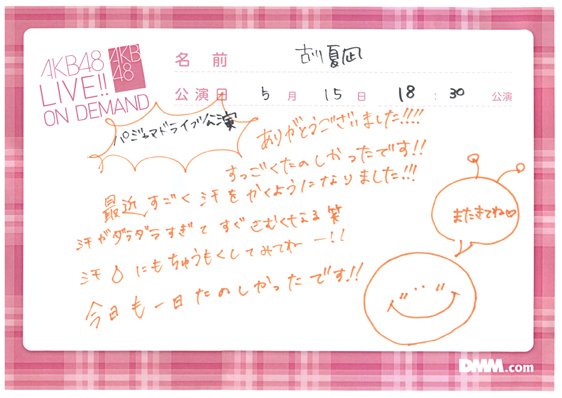 AKB48
LIVE!!
ON DEMAND
AKB
48
名前 夏凪
公演日 5月 15日 18:30 公演
パジャマドライブ公演
ありがとうございました!!!!
すっごくたのしかったです!!
最近 すごく 汗をかくようになりました!!!
汗がダラダラすぎて すぐさむくなる 笑
汗 にもちゅうもくしてみてねー!!
今日も一日たのしかったです!!
またきてね♡
DMM.com